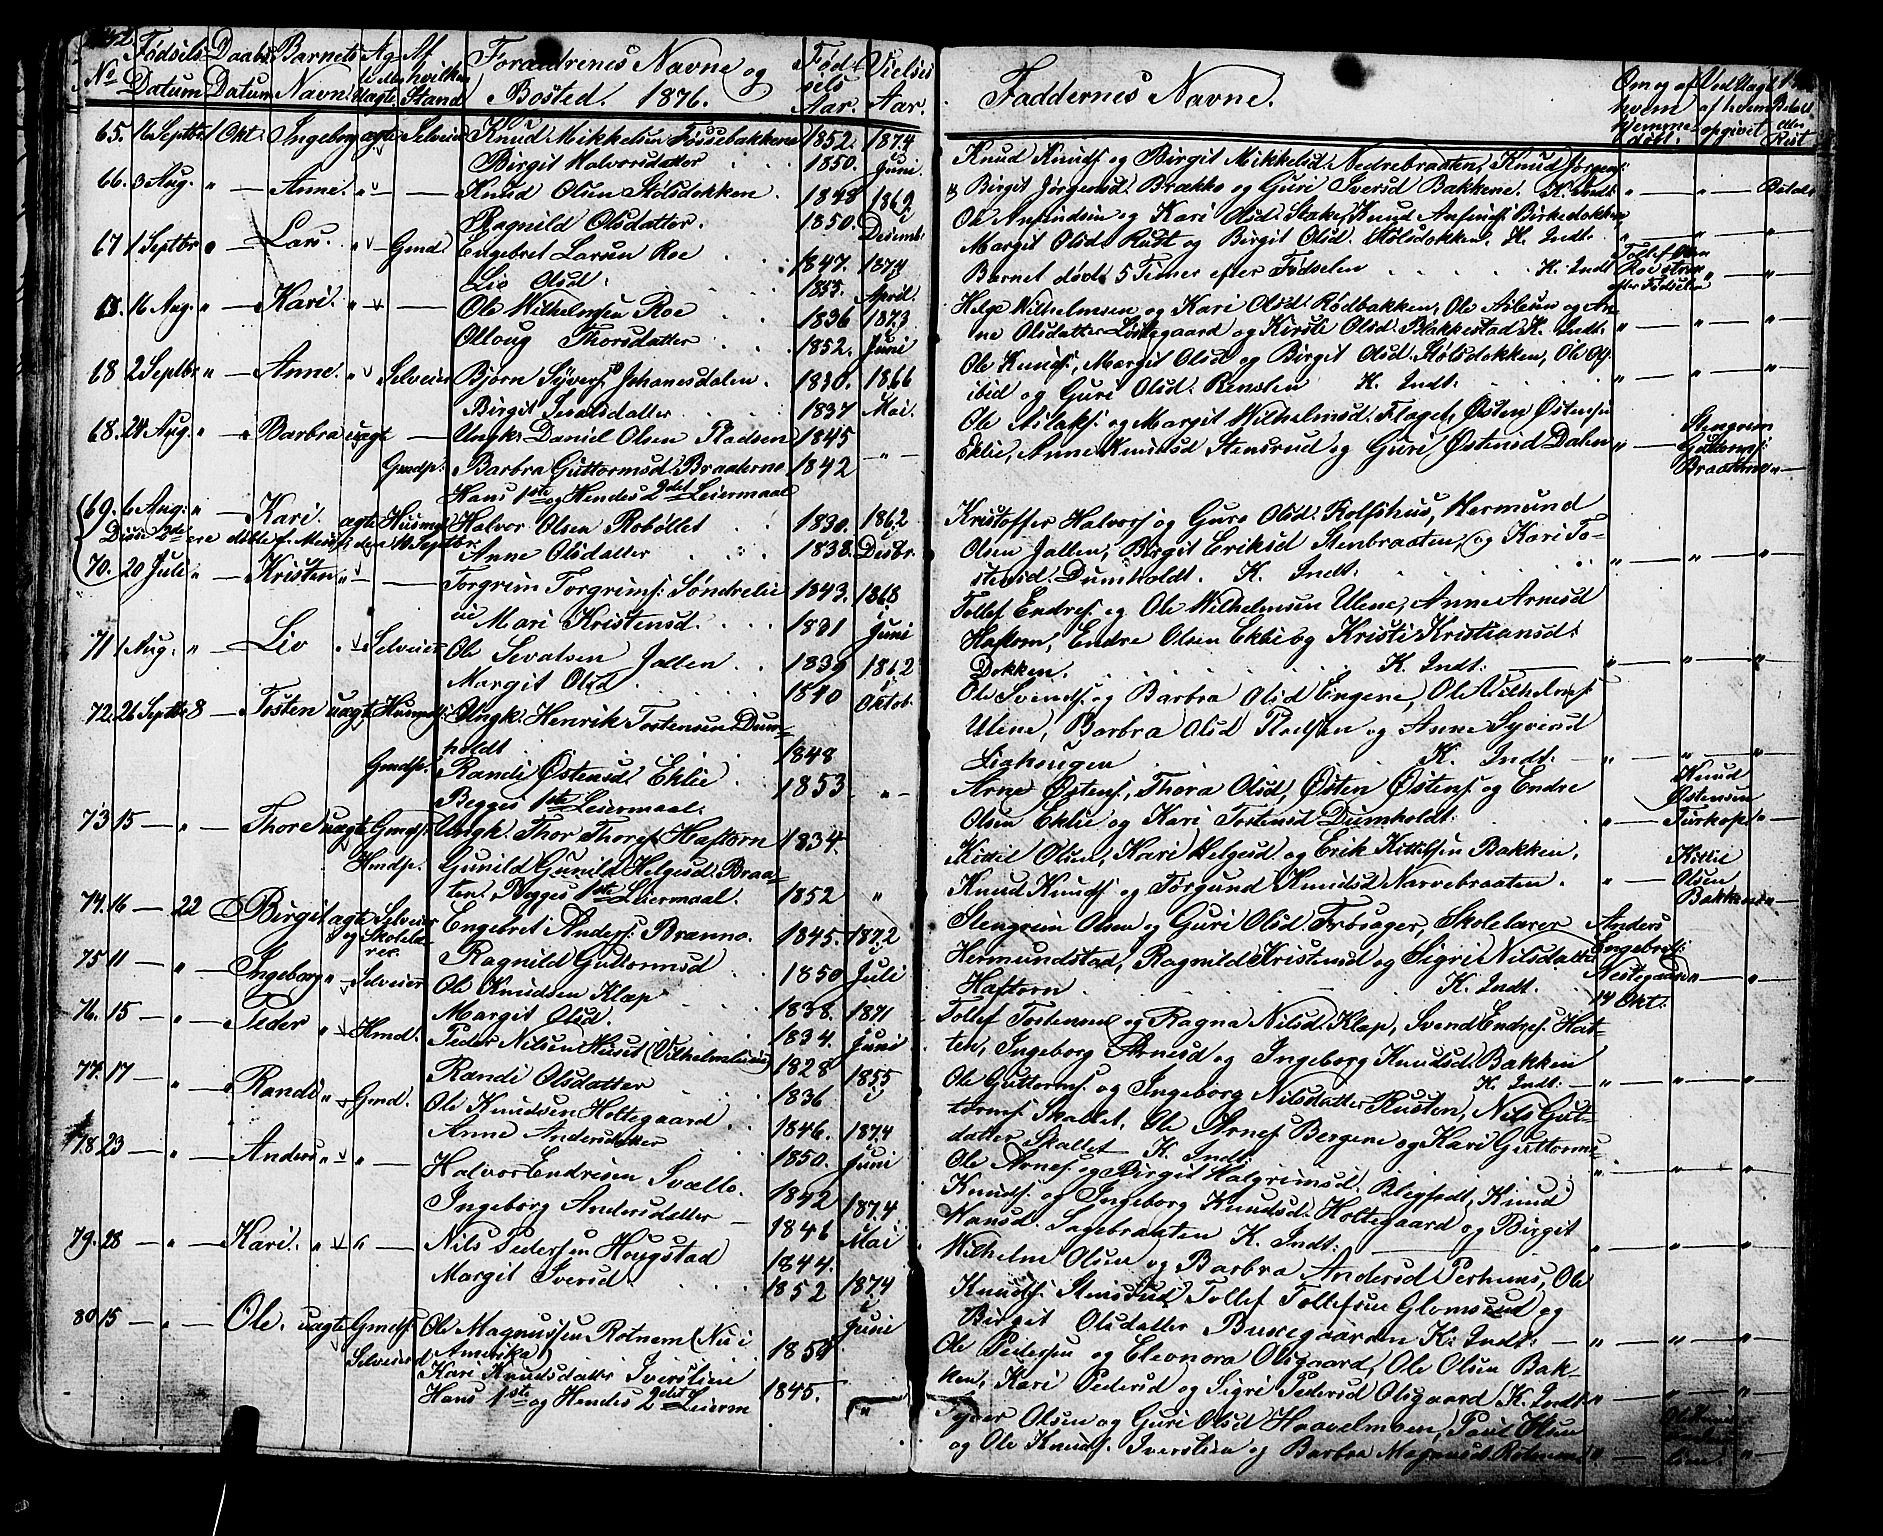 Fødsels Daabs Barnets Ag Af Forældrenes Navne og Fød- Vielses
No Datum Datum Navn te ell. hvilken Bosted. 1876. sels Aar.
Uagte Stand Aar.
65. Septbr 1 Okt. Ingeborg agte Selveier Knud Mikkelsen Fossebakkene 1852. 1874
Birgit Halvorsdatter 1850. Juni
66. 3 Aug. " — Anne. " — Knud Olsen Stölsdokken 1848 1869
Ragnild Olsdatter. 1850. i Desemb.
67 1 Septbr " — Lars. " Gmd. Engebret Larsen Roe 1847. 1874
Liv Olsd. 1853. April.
68. 16 Aug. " — Kari. " — Ole Wilhelmsen Roe 1836 1873
Olloug Thorsdatter 1852. Juni
68 2 Septbr " — Anne. " Selveier Bjørn Syvers. Johanesdalen. 1830. 1866
Birgit Sevalsdatter 1837 Mai.
68. 24 Aug. " " Barbra uagte — Ungk. Daniel Olsen Pladsen 1845
Gmdp. Barbra Guttormsd. Braatene 1842 "
Hans 1ste og Hendes 2det Leiermaal
69. 6 Aug: " — Kari. agte Husmd Halvor Olsen Robøllet 1830. 1862
Anne Olsdatter 1838. Desbr.
70. 20 Juli " — Kristen " — Torgrim Torgrims. Søndrelie 1843. 1868
Mari Kristensd. 1831 Juni
71 1 Aug. " — Liv " Selveier Ole Sevalsen Jallen 1839 1862
Margit Olsd 1840 Oktob.
72. 26 Septbr 8 — Tosten uagte Husmd: Ungk: Henrik Tostensen Dum-
holdt 1848
Gmdp. Randi Østensd. Eklie 1853 "
Begges 1ste Leiermaal.
73 15 — " — Thore uagte Gmds. Ungk. Thor Thores. Haftorn 1834.
Hmdp. Gunild Gunild Helgesd. Braa-
ten. Begges 1ste Leiermaal. 1852 "
74. 16 — 22 Birgit agte Selveier Engebret Anders. Brænno. 1845. 1872
og Skolelærer. Ragnild Guttormsd 1850 Juli
75 11 — " Ingeborg " Selveier Ole Knudsen Klap 1838. 1871
Margit Olsd. 1834. Juni
76. 15 — " — Peder " Hmd. Peder Nilsen Huset (Vilhelmslien) 1828 1855
Randi Olsdatter 1836 i
77. 17 — " — Randi " Gmd. Ole Knudsen Holtegaard 1846. 1874
Anne Andersdatter 1850. Juni
78. 23 — " — Anders " " — Halvor Endresen Svello. 1842 1874
Ingeborg Andersdatter 1846 Mai
79. 28 — " — Kari. " " — Nils Pedersen Hougstad 1844.
Margit Iversd. 1852 1874
80 15 — " — Ole. uagte Gmds. Ole Magnussen Rotnem (Nu i i Juni
Selveierd Amerika) 1850
Kari Knudsdatter Iverslien 1845. "
Hans 1ste og Hendes 2det Leierm
Faddernes Navne.
Knud Knuds. og Birgit Mikkelsd. Nedrebraaten, Knud Jørgens:
Birgit Jörgensd. Brække og Guri Iversd Bakkene. K. Indt. " — " — Betalt
Ole Anfindsen og Kari Olsd. Stake, Knud Anfinds. Birkedokken
Margit Olsd. Rust og Birgit Olsd. Stölsdokken. K. Indt. " — " — "
Barnet døde 5 Timer efter Fødselen K. Indt Tollef Olsen Roe strax efter Fødselen " — "
Helge Wilhelmsen og Kari Olsd. Rødbakken, Ole Asleson og An-
ne Olsdatter Löstegaard og Kirsti Olsd. Bakkestad K. Indt. " — " — "
Ole Knuds., Margit Olsd og Birgit Olsd. Stölsdokken, Ole Ols.
ibid og Guri Olsd. Rensten K. Indt. " — " — "
Ole Aslaks. og Margit Wilhelmsd. Flaget, Østen Østensen
Eklie, Anne Knudsd Stensrud og Guri Østensd Dalen " — Stengrim Guttorms. Braatene "
Kristoffer Halvors. og Guro Olsd. Rolfshus, Hermund
Olsen Jallen, Birgit Eriksd Stenbraaten, og Kari To-
stensd. Dumholdt. K. Indt. " — " — "
Tollef Endres. og Ole Wilhelmsen Ulene, Anne Arnesd
Haftorn, Endre Olsen Eklie og Kristi Kristiansd:
Dokken. K. Indt. — " — " — "
Ole Svends. og Barbra Olsd Engene, Ole Wilhelms:
Ulene, Barbra Olsd Pladsen og Anne Syversd
Liahougen K. Indt. — " — " — "
Arne Østens., Thora Olsd, Østen Østens. og Endre Knud Østensen
Olsen Eklie og Kari Tostensd Dumholdt. " — Turkop "
Kittil Olsen, Kari Helgesd. og Erik Kittilsen Bakken, Kittil
Knud Knuds. og Torgund Knudsd Narvebraaten. " — Olsen Bakken "
Stengrim Olsen og Guri Olsd. Frösager, Skolelærer Anders
Hermundstad, Ragnild Kristensd og Sigri Nilsdatter Engebrets:
Haftorn K. Indt. Nestegaard 14 Okt. " — "
Tollef Tostensen og Ragna Nilsd. Klap, Svend Endres. Hat-
ten, Ingeborg Arnesd og Ingeborg Knudsd. Bakken
K. Indt: — " — " — "
Ole Guttorms. og Ingeborg Nilsdatter Rusten, Nils Gut-
torms. Skallet, Ole Arnes. Bergene og Kari Guttorms-
datter Skallet K. Indt: " — " — "
Ole Arnes. og Birgit Halgrimsd. Blegfødt, Knud
Knuds. og Ingeborg Knudsd. Holtegaard og Birgit
Hansd. Sagebraaten K. Indt: — " — " — "
Wilhelm Olsen og Barbra Andersd Perhuns, Ole
Knuds. Stensrud, Tollef Tollefsen Glomsrud og
Birgit Olsdatter Buxegaarden K. Indt: — " — " — "
Ole Pedersen og Eleonora Olsgaard, Ole Olsen Bak-
ken, Kari Pedersd og Sigri Pedersd Olsgaard K. Indt. " — " — "
Syver Olsen og Guri Olsd Haavelmoen, Paul Olsen
og Ole Knuds. Iverslien og Barbra Magnusd Rotnem " — "